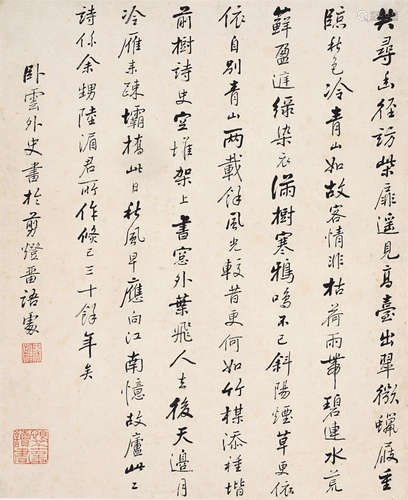 共尋幽徑訪柴扉遥見高臺出翠微蠟屐重
臨秋色冷青山如故客情非枯荷雨帶碧連水荒
蘚盈綠染衣滿樹寒鴉鳴不已斜陽煙草更依
依自别青山兩載餘風光較昔更何如竹楳添種堦
前樹詩史空堆架上書窗外葉飛人去後天邊月
冷雁來疎壩橋此日秋風早應向江南憶故廬此二
詩係余甥陸湄君所作倏已三十餘年矣
卧雲外史畫於剪燈畨語處